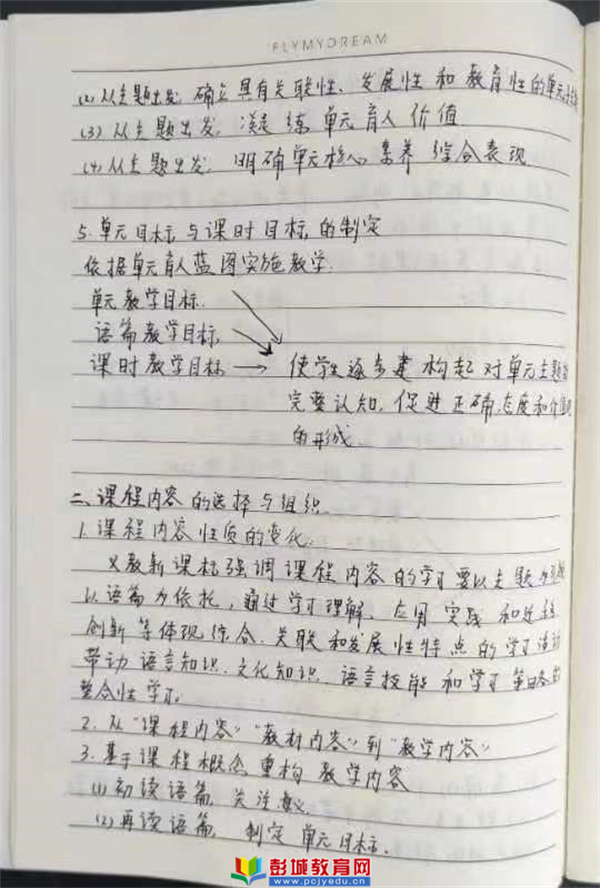 FLYMYDREAM
(2)从主题出发,确立具有关联性、发展性和教育性的单元
(3)从主题出发,凝练单元育人价值
(4)从主题出发,明确单元核心素养综合表现
5.单元目标与课时目标的制定
依据单元育人蓝图实施教学.
单元教学目标.
语篇教学目标
课时教学目标 → 使学生逐步建构起对单元主题的
完整认知,促进正确态度和价值观
的形成
二、课程内容的选择与组织.
1.课程内容性质的变化:
义教新课标强调课程内容的学习要以主题为引领
以语篇为依托,通过学习理解、应用实践和迁移
创新等体现综合、关联和发展性特点的学习活动
带动语言知识、文化知识、语言技能和学习策略的
整合性学习。
2.从“课程内容”“教材内容”到“教学内容”
3.基于课程概念重构教学内容
(1)初读语篇,关注意义.
(2)再读语篇,制定单元目标.
彭城教育网
www.pcjyedu.cn